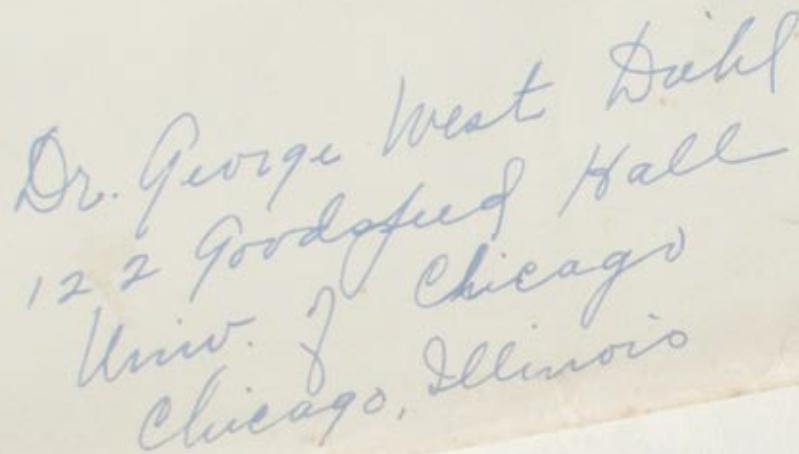 Dr. George West Diehl
122 Goodspeed Hall
Univ. of Chicago
Chicago, Illinois